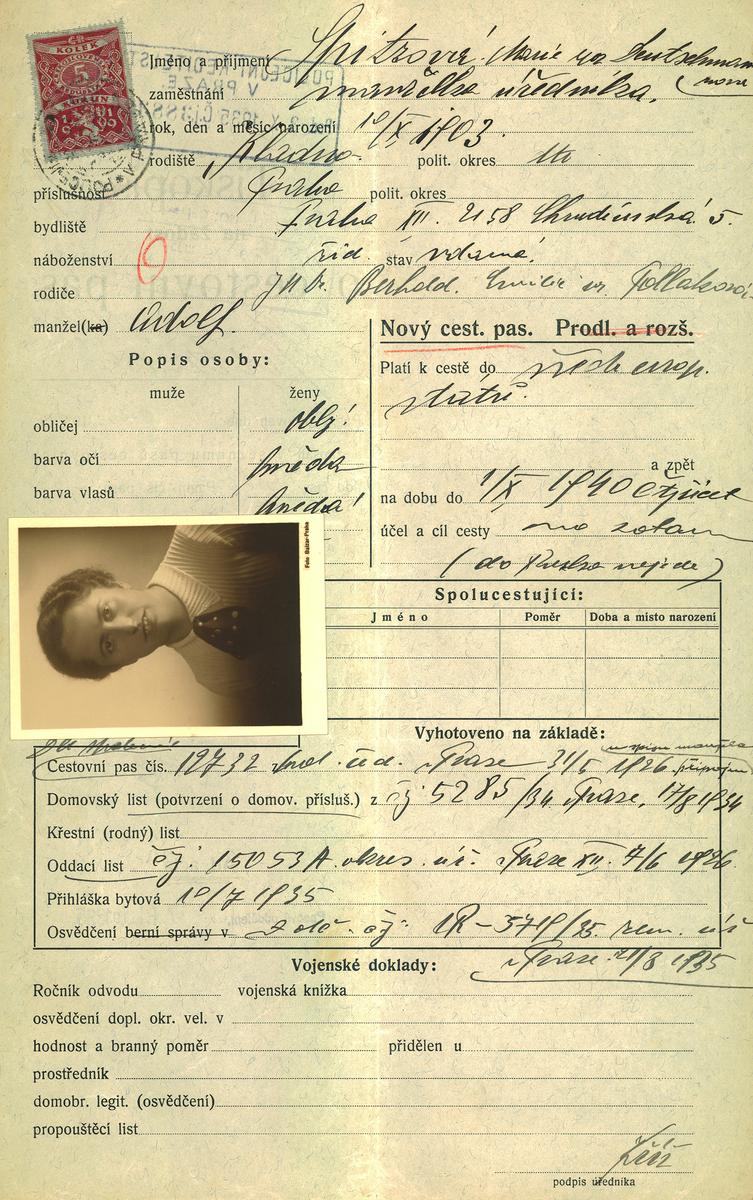 ČS
KOLEK
5
KORUN
19
Jméno a příjmení Spitzová Marie roz Deutschman
nová
zaměstnání manželka úředníka.
rok, den a měsíc narození 10/X 1903.
rodiště Kladno. polit. okres tto
příslušnost Praha polit. okres
bydliště Praha XII. 2158 Chrudimská 5.
náboženství žid. stav vdaná
rodiče JUDr. Berthold. Emilie r. Pollaková
manžel(ka) Adolf.
Nový cest. pas. Prodl. a rozš.
Popis osoby:
Platí k cestě do všech evrop.
států.
muže ženy
obličej oblý
barva očí hnědá
barva vlasů hnědá
a zpět
na dobu do 1/X 1940 čtyřicet
účel a cíl cesty na zotav
(do Ruska nejede)
Foto Balzar-Praha
Spolucestující:
Jméno Poměr Doba a místo narození
Vyhotoveno na základě:
Cestovní pas čís. 12732 pol. řed. v Praze 31/5 1926. připojen
Domovský list (potvrzení o domov. přísluš.) z čj 5285/34 Praze, 17/8 1934
Křestní (rodný) list
Oddací list čj. 15053A okres. úř. Praze XII. 7/6 1926.
Přihláška bytová 10/7 1935
Osvědčení berní správy v čj. IR-5719/35 zem. úř
v Praze 21/8 1935
Vojenské doklady:
Ročník odvodu vojenská knížka
osvědčení dopl. okr. vel. v
hodnost a branný poměr přidělen u
prostředník
domobr. legit. (osvědčení)
propouštěcí list
podpis úředníka